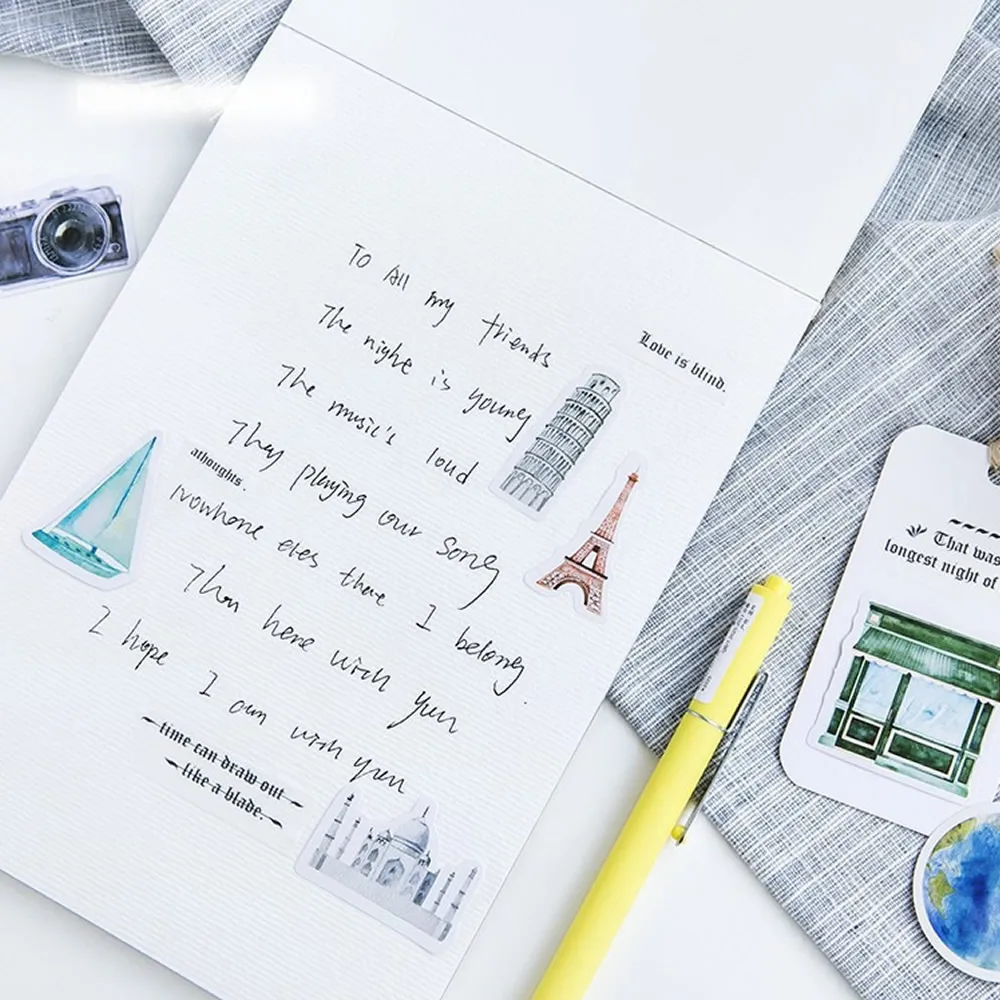 To All my friends
The nighe is young
Love is blind.
The music's loud
They playing our song
athoughts.
Nowhone eles there I belong.
Than here with yun
I hope I am with yun
time can draw out
like a blade.
That was
longest night of